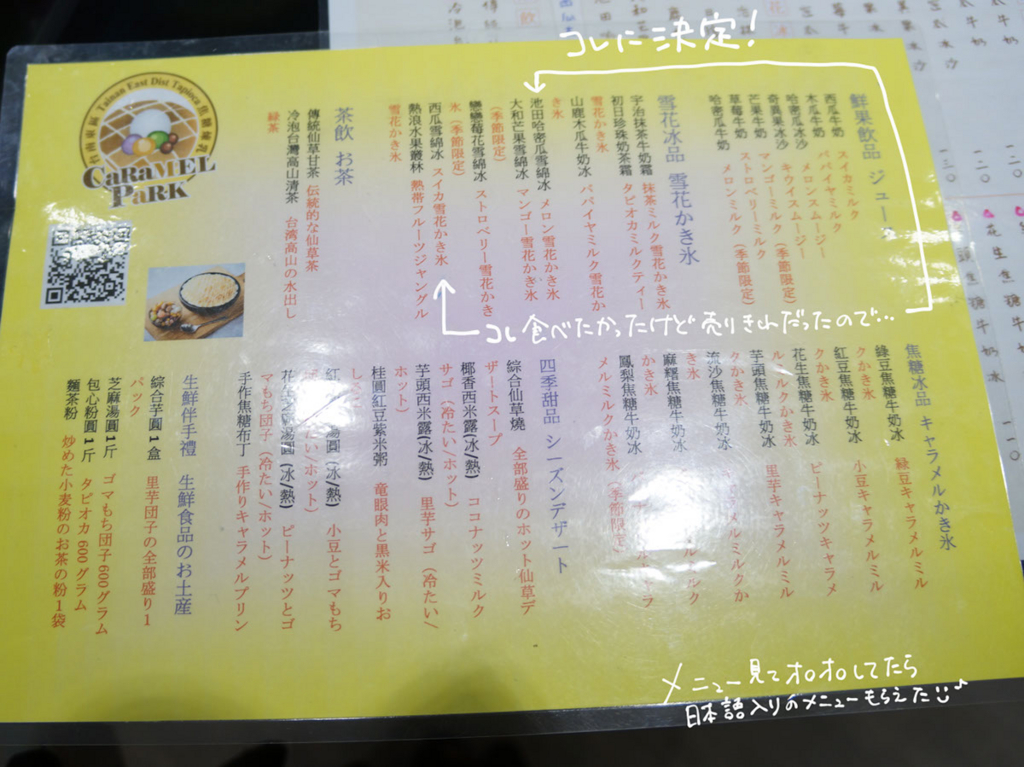 コレに決定!
鮮果飲品 ジュース
西瓜牛奶 スイカミルク
木瓜牛奶 パパイヤミルク
哈密瓜冰沙 メロンスムージー
奇異果冰沙 キウイスムージー
芒果牛奶 マンゴーミルク(季節限定)
草莓牛奶 ストロベリーミルク
哈密瓜牛奶 メロンミルク(季節限定)
雪花冰品 雪花かき氷
宇治抹茶牛奶霜 抹茶ミルク雪花かき氷
初日珍珠奶茶霜 タピオカミルクティー
雪花かき氷
山鹿木瓜牛奶冰 パパイヤミルク雪花か
き氷
池田哈密瓜雪綿冰 メロン雪花かき氷
大和芒果雪綿冰 マンゴー雪花かき氷
(季節限定)
戀戀莓花雪綿冰 ストロベリー雪花かき
氷(季節限定)
西瓜雪綿冰 スイカ雪花かき氷
熱浪水果叢林 熱帯フルーツジャングル
雪花かき氷
茶飲 お茶
傳統仙草甘茶 伝統的な仙草茶
冷泡台灣高山清茶 台湾高山の水出し
緑茶
Tainan East Dist Tapioca
CaRaMEL
PaRK
コレ食べたかったけど売りきれだったので…
焦糖冰品 キャラメルかき氷
綠豆焦糖牛奶冰 緑豆キャラメルミル
クかき氷
紅豆焦糖牛奶冰 小豆キャラメルミル
クかき氷
花生焦糖牛奶冰 ピーナッツキャラメ
ルミルクかき氷
芋頭焦糖牛奶冰 里芋キャラメルミル
クかき氷
流沙焦糖牛奶冰 メルミルクか
き氷
麻糬焦糖牛奶冰 ルミルク
かき氷
鳳梨焦糖牛奶冰 ラ
メルミルクかき氷(季節限定)
四季甜品 シーズンデザート
綜合仙草燒 全部盛りのホット仙草デ
ザートスープ
椰香西米露(冰/熱) ココナッツミルク
サゴ(冷たい/ホット)
芋頭西米露(冰/熱) 里芋サゴ(冷たい/
ホット)
桂圓紅豆紫米粥 竜眼肉と黒米入りお
しるこ
紅 湯圓(冰/熱) 小豆とゴマもち
たい/ホット)
花 湯圓(冰/熱) ピーナッツとゴ
マもち団子(冷たい/ホット)
手作焦糖布丁 手作りキャラメルプリン
生鮮伴手禮 生鮮食品のお土産
綜合芋圓1盒 里芋団子の全部盛り1
パック
芝麻湯圓1斤 ゴマもち団子600グラム
包心粉圓1斤 タピオカ600グラム
麵茶粉 炒めた小麦粉のお茶の粉1袋
メニュー見てオロオロしてたら
日本語入りのメニューもらえた♪